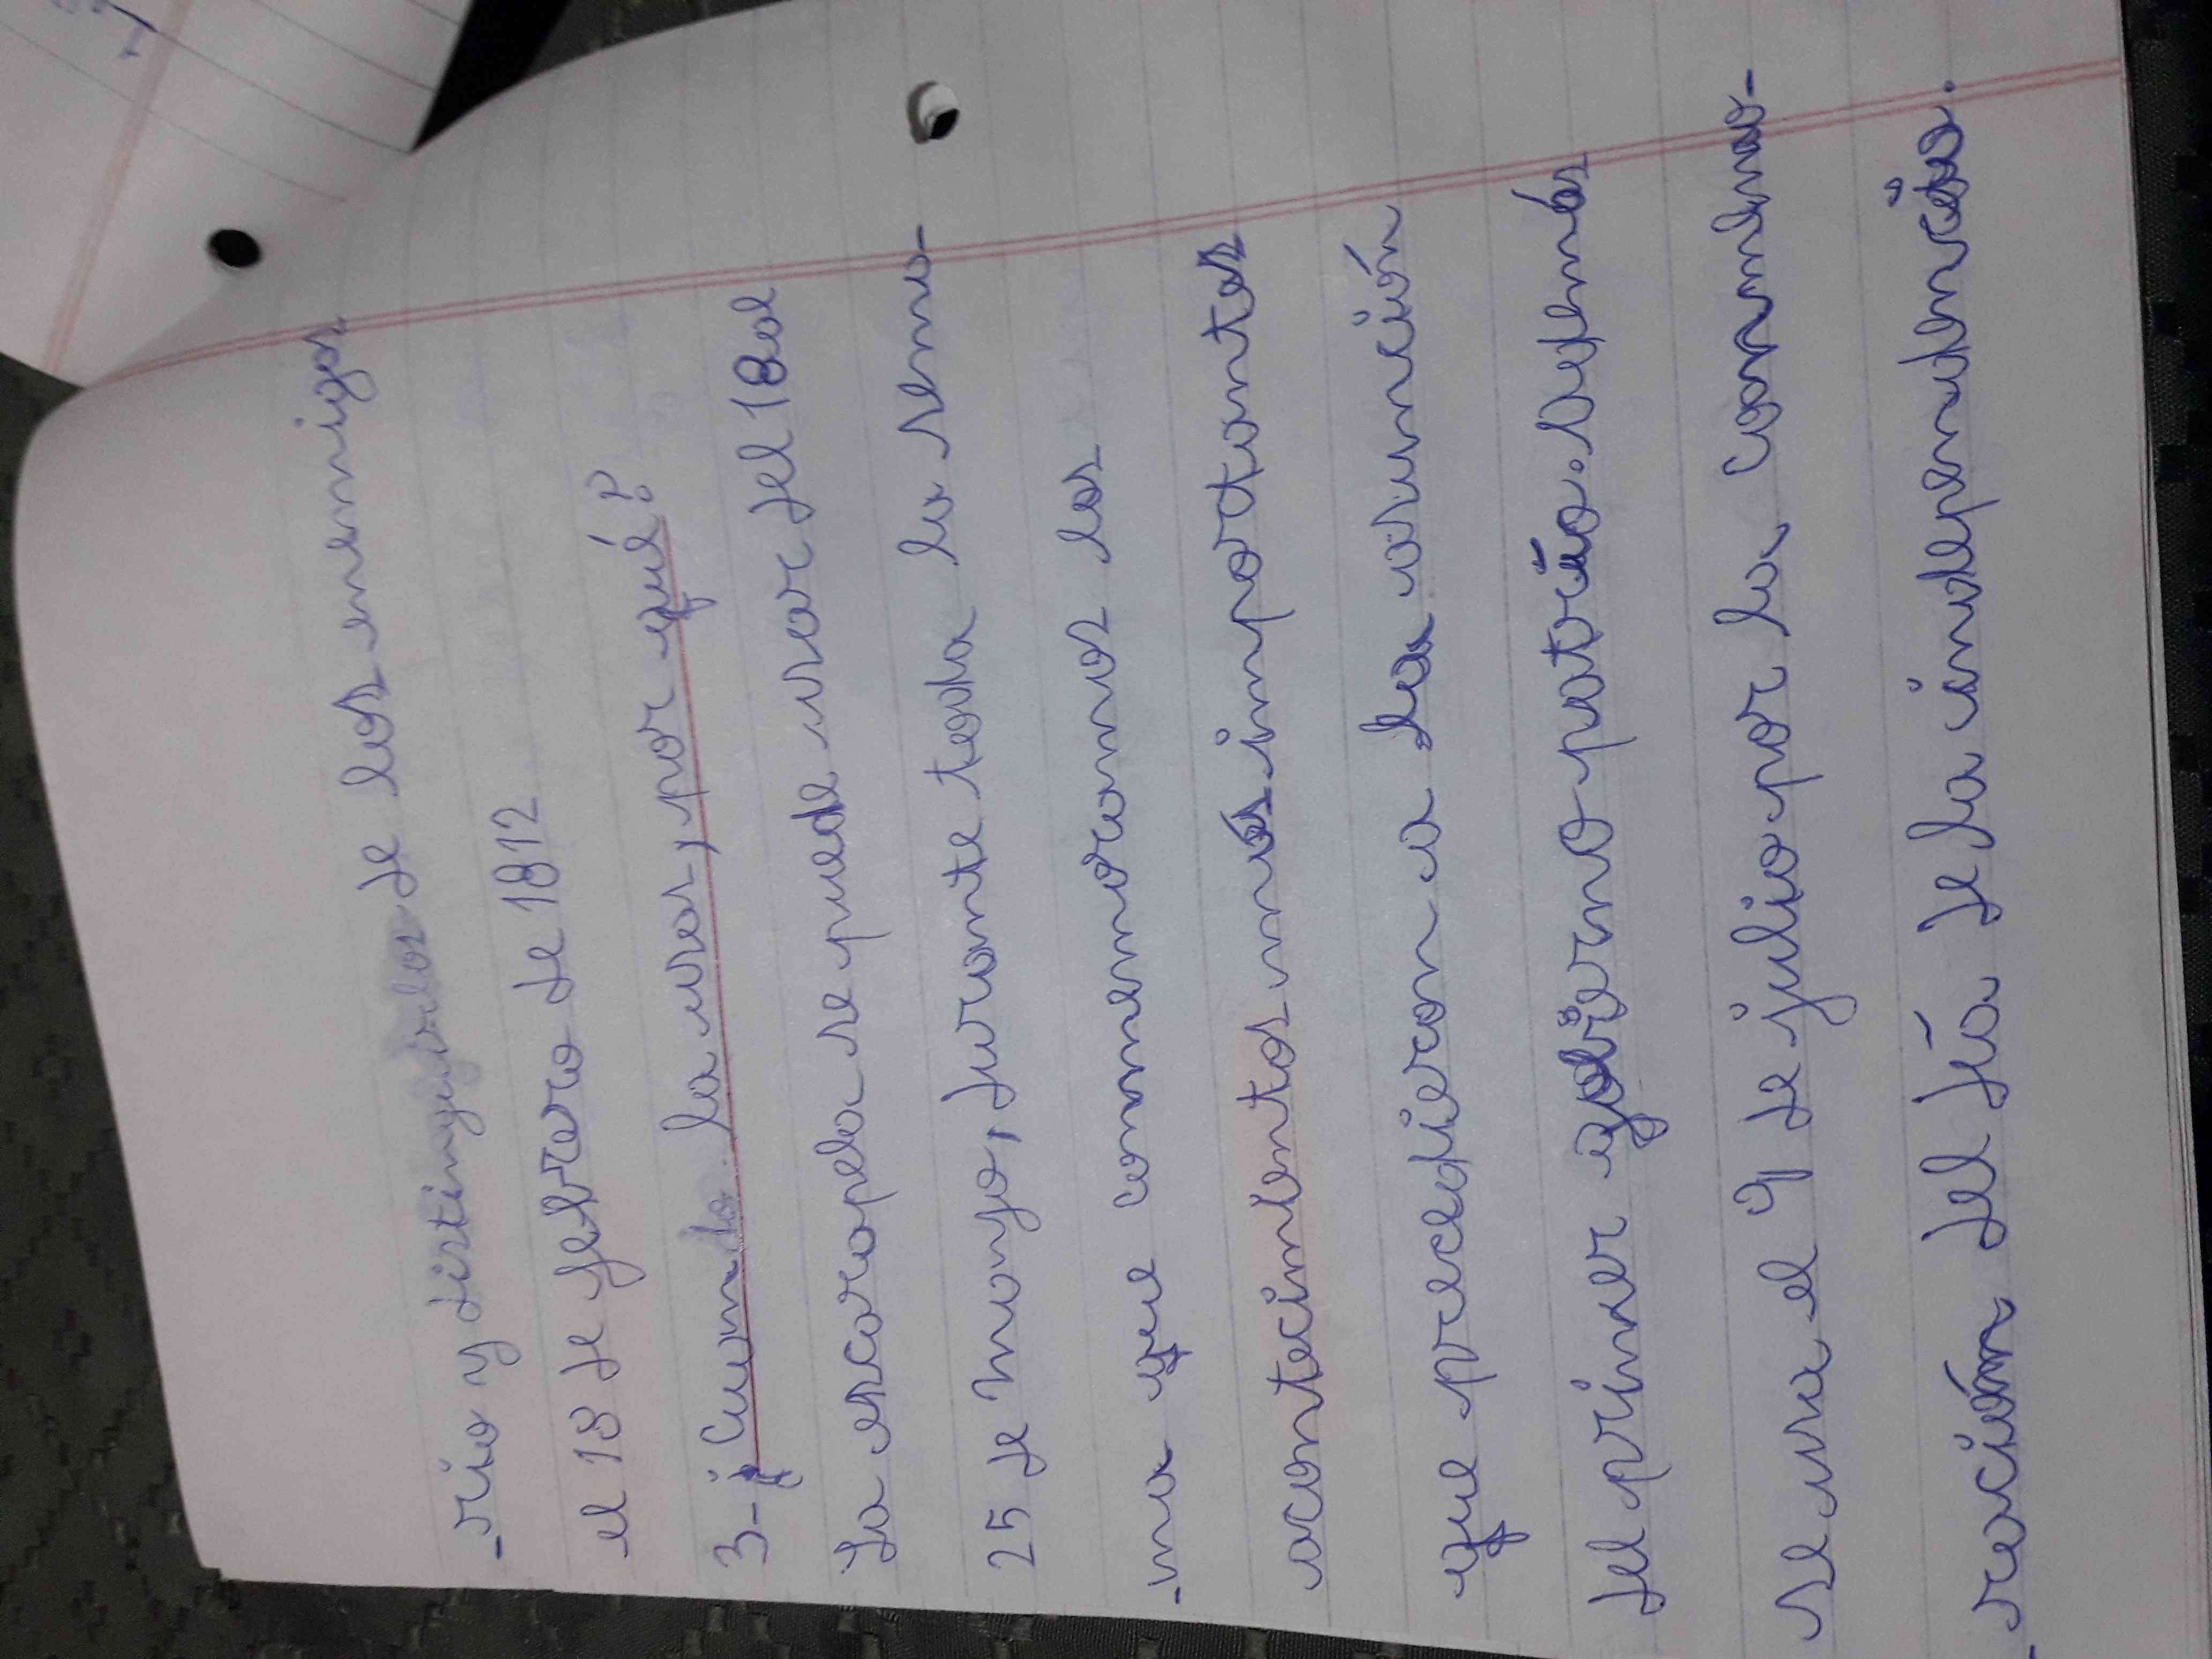 -rio y distinguirlos de los enemigos
el 18 de febrero de 1812
3-¿Cuando la usas, por qué?
La escarapela se puede usar del 18 al
25 de mayo, durante toda la sema-
-na que conmemoramos los
acontecimientos más importantes
que precedieron a la asunción
del primer gobierno patrio. Además
se usa el 9 de julio por la conmemo-
-ración del día de la independencia.